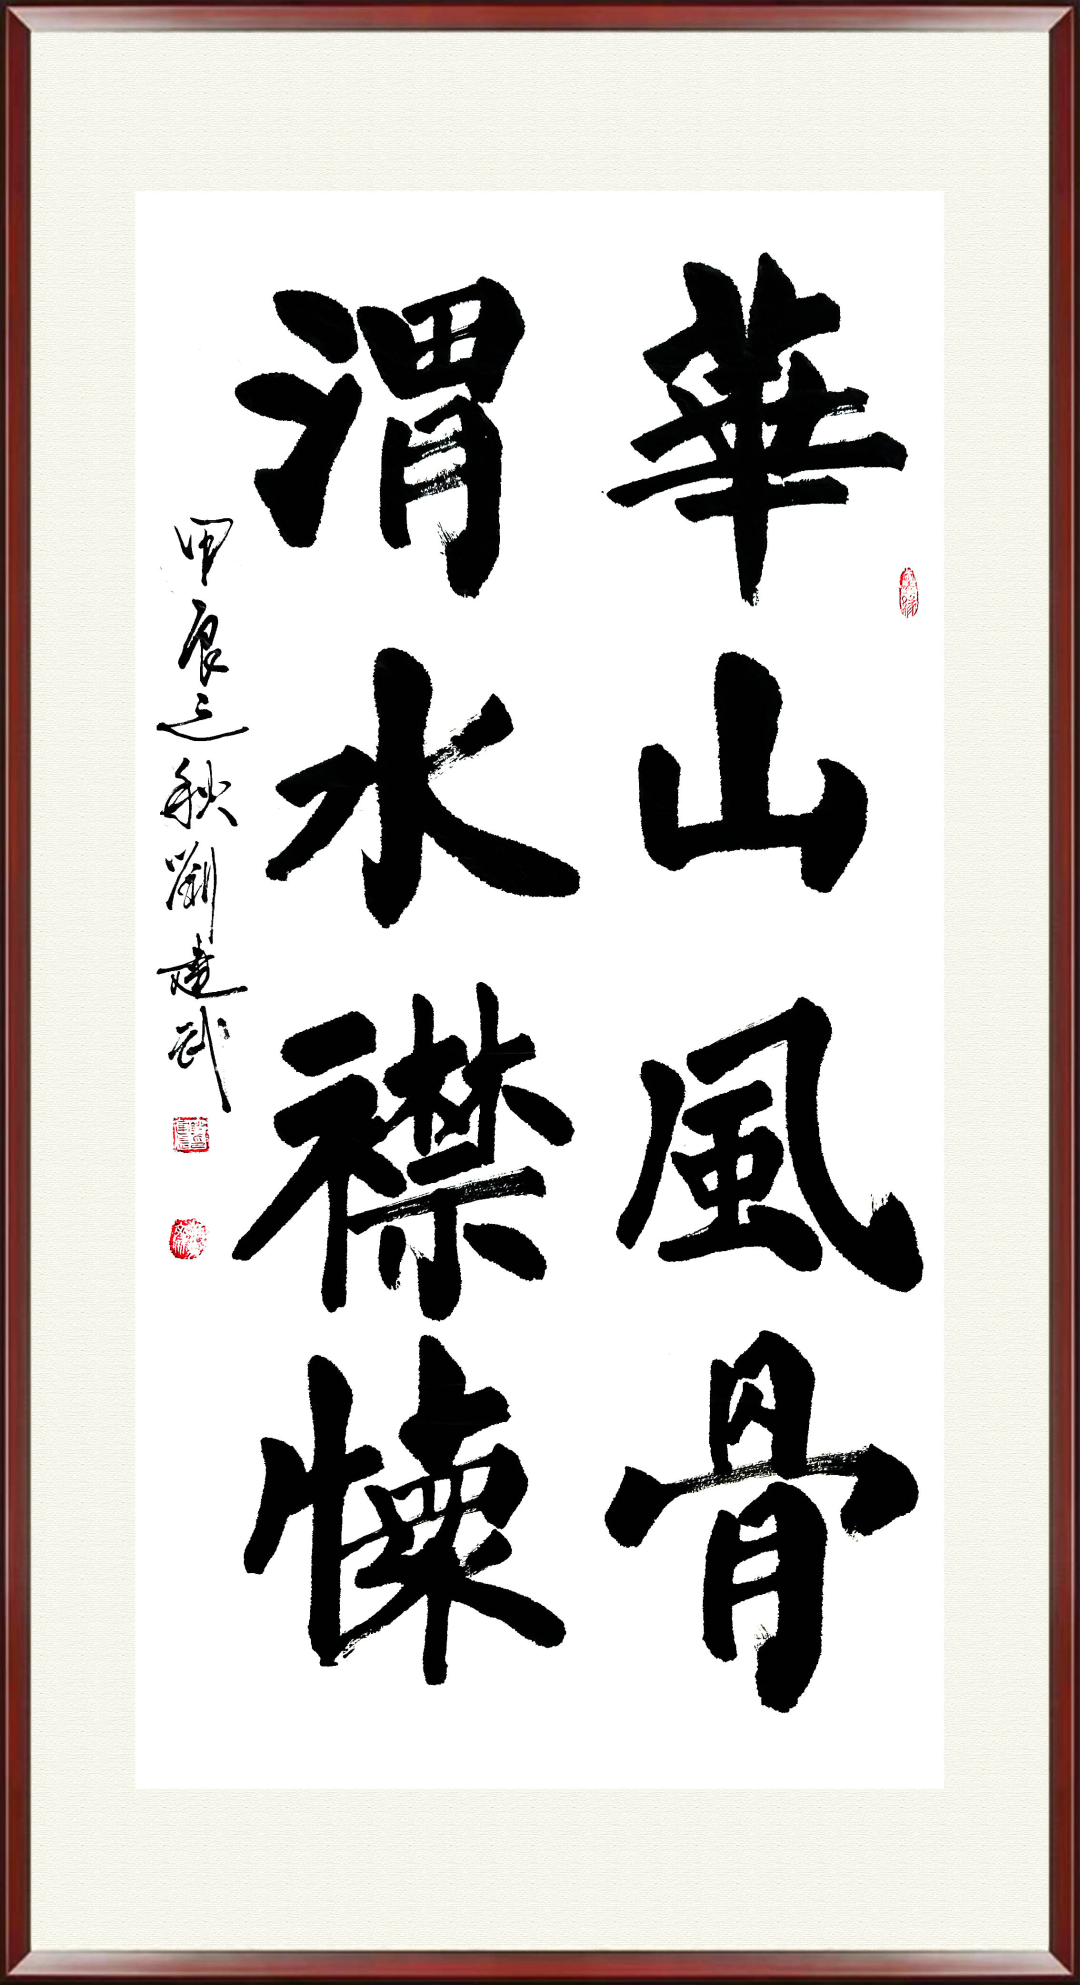 華山風骨
渭水襟懐
甲辰之秋劉建武